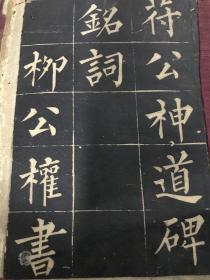 苻公神道碑
銘詞
柳公權書